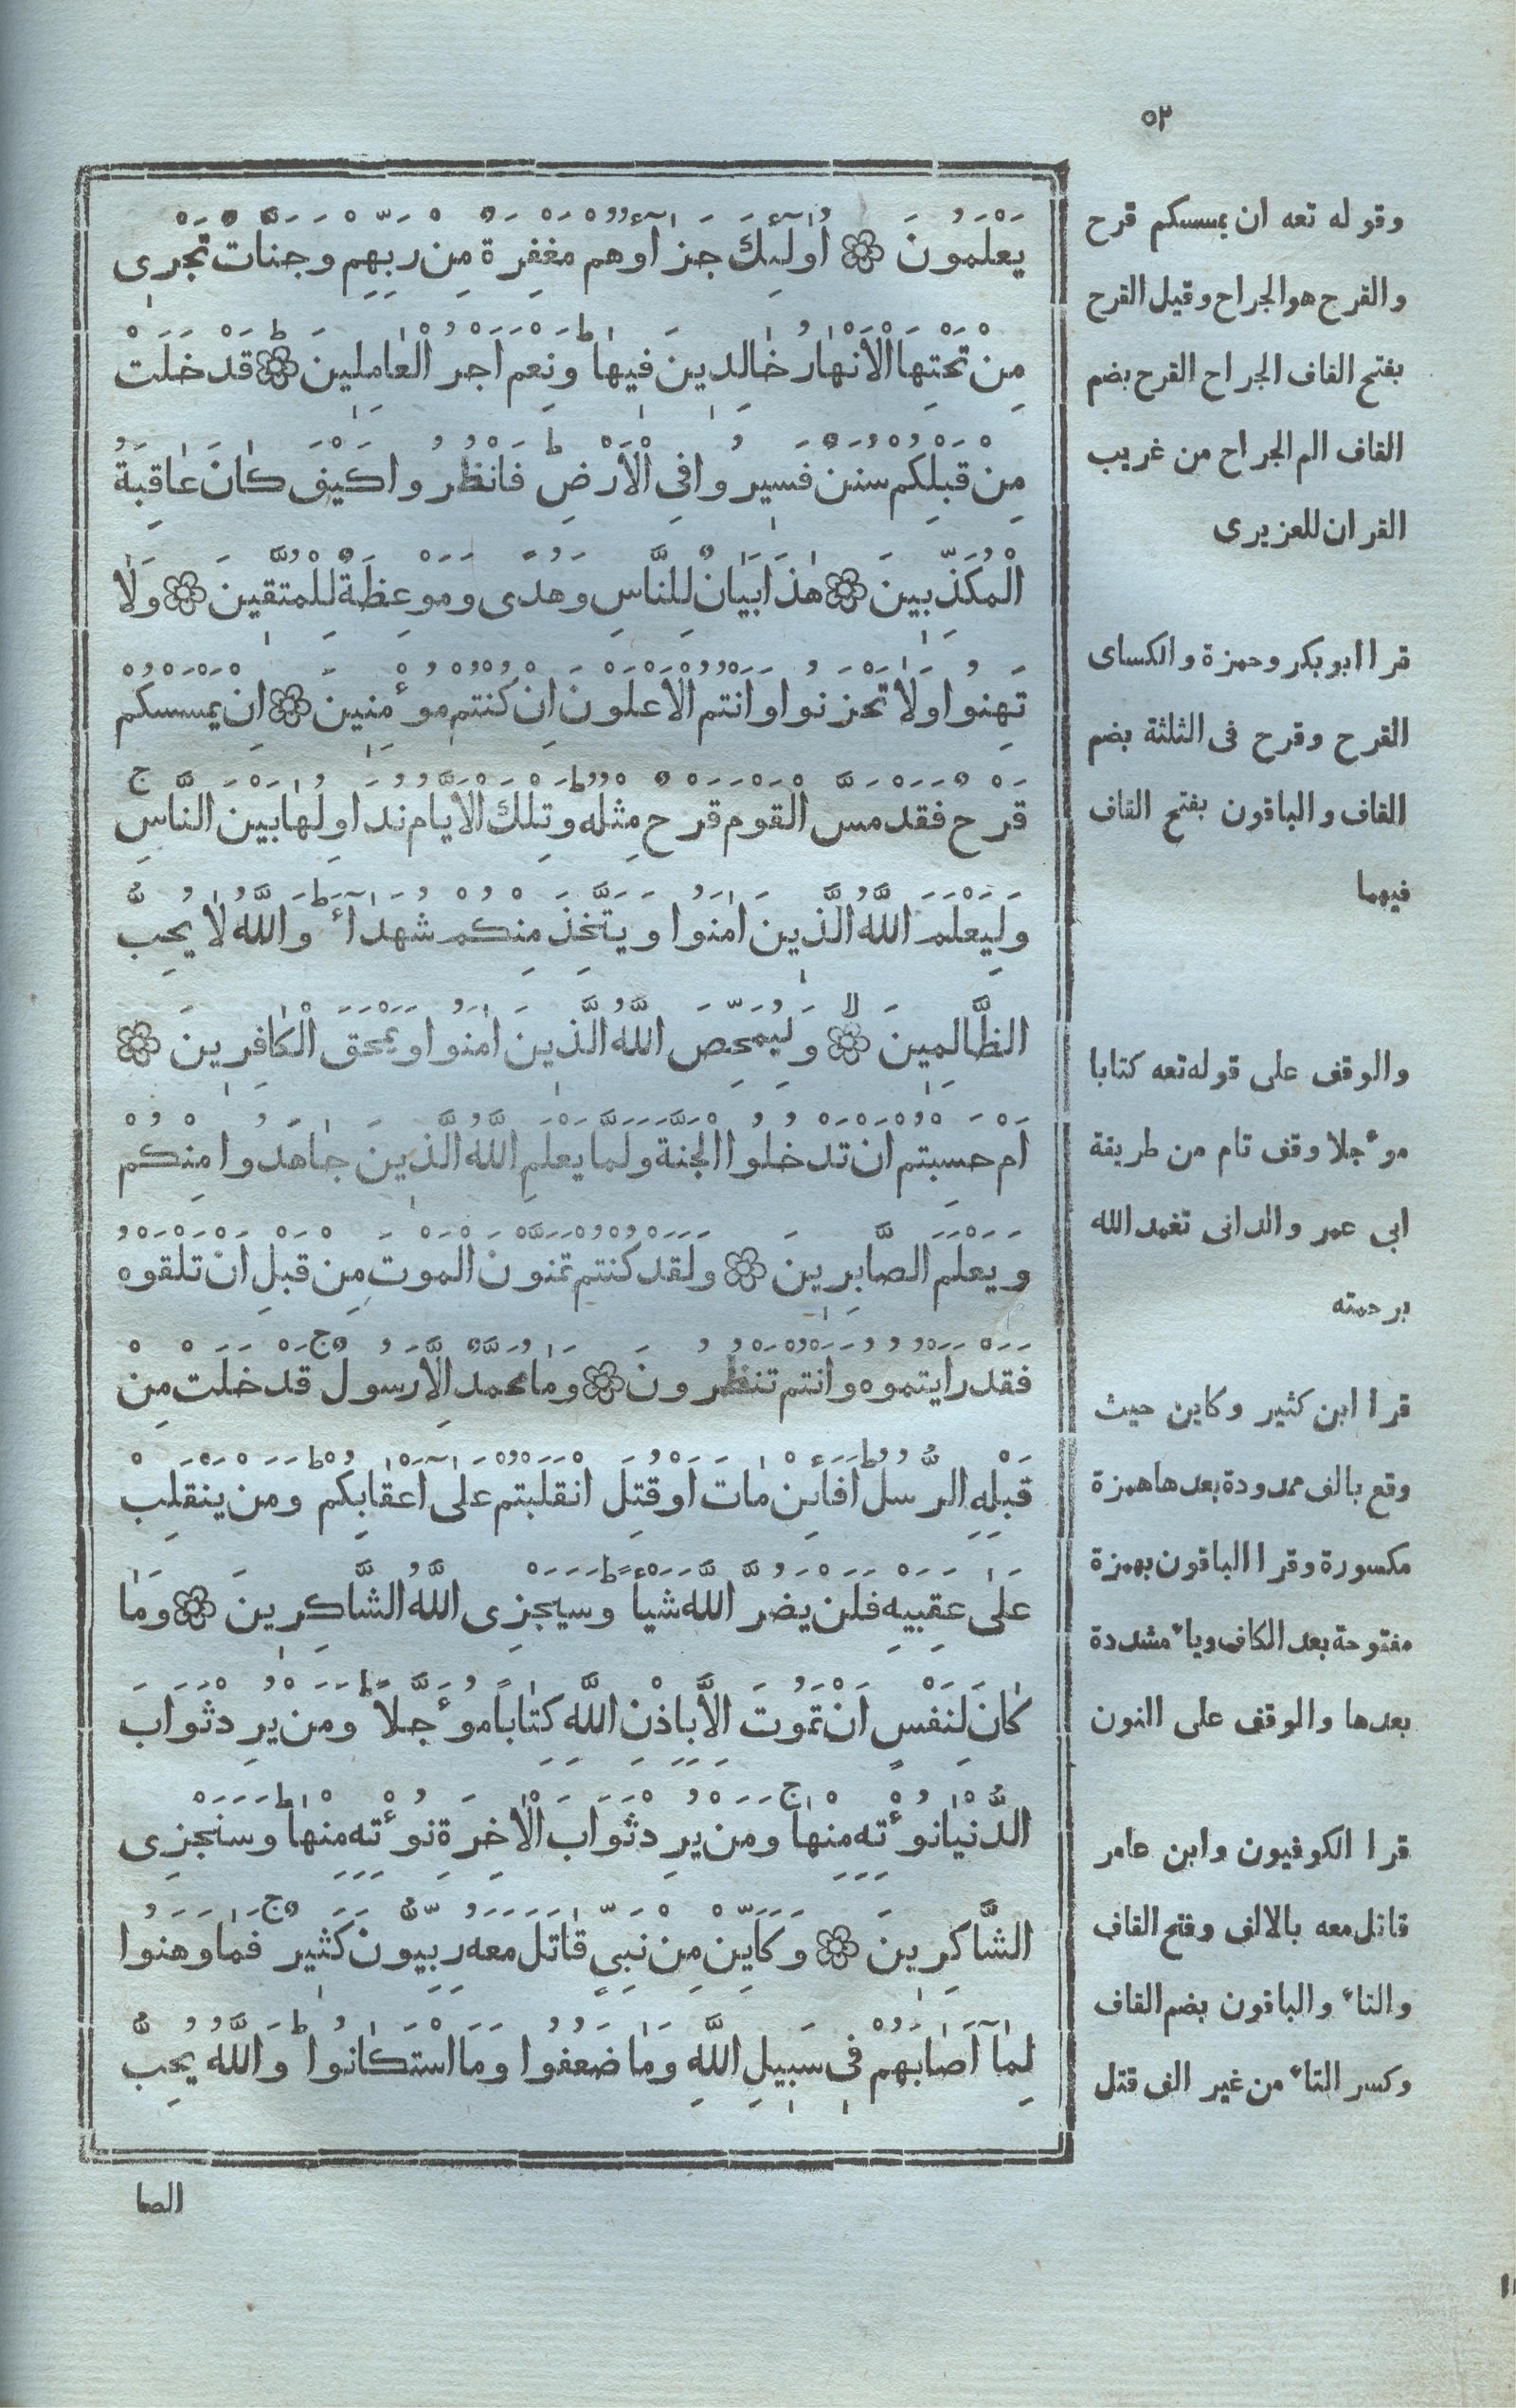 ٥٢
يَعْلَمُونَ ۞ اُولٰٓئِكَ جَزَآؤُهُمْ مَغْفِرَةٌ مِنْ رَبِّهِمْ وَجَنَّاتٌ تَجْرِى
مِنْ تَحْتِهَا الْاَنْهَارُ خَالِدِينَ فِيهَاط وَنِعْمَ اَجْرُ الْعَامِلِينَط ۞ قَدْ خَلَتْ
مِنْ قَبْلِكُمْ سُنَنٌ فَسِيرُوا فِى الْاَرْضِط فَانْظُرُوا كَيْفَ كَانَ عَاقِبَةُ
الْمُكَذِّبِينَ ۞ هٰذَا بَيَانٌ لِلنَّاسِ وَهُدًى وَمَوْعِظَةٌ لِلْمُتَّقِينَ ۞ وَلَا
تَهِنُوا وَلَا تَحْزَنُوا وَاَنْتُمُ الْاَعْلَوْنَ اِنْ كُنْتُمْ مُؤْمِنِينَ ۞ اِنْ يَمْسَسْكُمْ
قَرْحٌ فَقَدْ مَسَّ الْقَوْمَ قَرْحٌ مِثْلُهُط وَتِلْكَ الْاَيَّامُ نُدَاوِلُهَا بَيْنَ النَّاسِج
وَلِيَعْلَمَ اللَّهُ الَّذِينَ اٰمَنُوا وَيَتَّخِذَ مِنْكُمْ شُهَدَآءَط وَاللَّهُ لَا يُحِبُّ
الظَّالِمِينَ لا ۞ وَلِيُمَحِّصَ اللَّهُ الَّذِينَ اٰمَنُوا وَيَمْحَقَ الْكَافِرِينَ ۞
اَمْ حَسِبْتُمْ اَنْ تَدْخُلُوا الْجَنَّةَ وَلَمَّا يَعْلَمِ اللَّهُ الَّذِينَ جَاهَدُوا مِنْكُمْ
وَيَعْلَمَ الصَّابِرِينَ ۞ وَلَقَدْ كُنْتُمْ تَمَنَّوْنَ الْمَوْتَ مِنْ قَبْلِ اَنْ تَلْقَوْهُ
فَقَدْ رَاَيْتُمُوهُ وَاَنْتُمْ تَنْظُرُونَ ۞ وَمَا مُحَمَّدٌ اِلَّا رَسُولٌج قَدْ خَلَتْ مِنْ
قَبْلِهِ الرُّسُلُط اَفَائِنْ مَاتَ اَوْ قُتِلَ انْقَلَبْتُمْ عَلٰٓى اَعْقَابِكُمْط وَمَنْ يَنْقَلِبْ
عَلٰى عَقِبَيْهِ فَلَنْ يَضُرَّ اللَّهَ شَيْأًط وَسَيَجْزِى اللَّهُ الشَّاكِرِينَ ۞ وَمَا
كَانَ لِنَفْسٍ اَنْ تَمُوتَ اِلَّا بِاِذْنِ اللَّهِ كِتَابًا مُؤَجَّلًاط وَمَنْ يُرِدْ ثَوَابَ
الدُّنْيَا نُؤْتِهِ مِنْهَاج وَمَنْ يُرِدْ ثَوَابَ الْاٰخِرَةِ نُؤْتِهِ مِنْهَاط وَسَنَجْزِى
الشَّاكِرِينَ ۞ وَكَاَيِّنْ مِنْ نَبِىٍّ قَاتَلَ مَعَهُ رِبِّيُّونَ كَثِيرٌج فَمَا وَهَنُوا
لِمَآ اَصَابَهُمْ فِى سَبِيلِ اللَّهِ وَمَا ضَعُفُوا وَمَا اسْتَكَانُواط وَاللَّهُ يُحِبُّ
الصا
وقوله تعه ان يمسسكم قرح
والقرح هو الجراح وقيل القرح
بفتح القاف الجراح القرح بضم
القاف الم الجراح من غريب
القران للعزيرى
قرا ابو بكر وحمزة والكساى
القرح وقرح فى الثلثة بضم
القاف والباقون بفتح القاف
فيهما
والوقف على قوله تعه كتابا
موٴجلا وقف تام من طريقة
ابى عمر والدانى تغمد الله
برحمته
قرا ابن كثير وكاين حيث
وقع بالف ممدودة بعدها همزة
مكسورة وقرا الباقون بهمزة
مفتوحة بعد الكاف وياء مشددة
بعدها والوقف على النون
قرا الكوفيون وابن عامر
قاتل معه بالالف وفتح القاف
والتاء والباقون بضم القاف
وكسر التاء من غير الف قتل